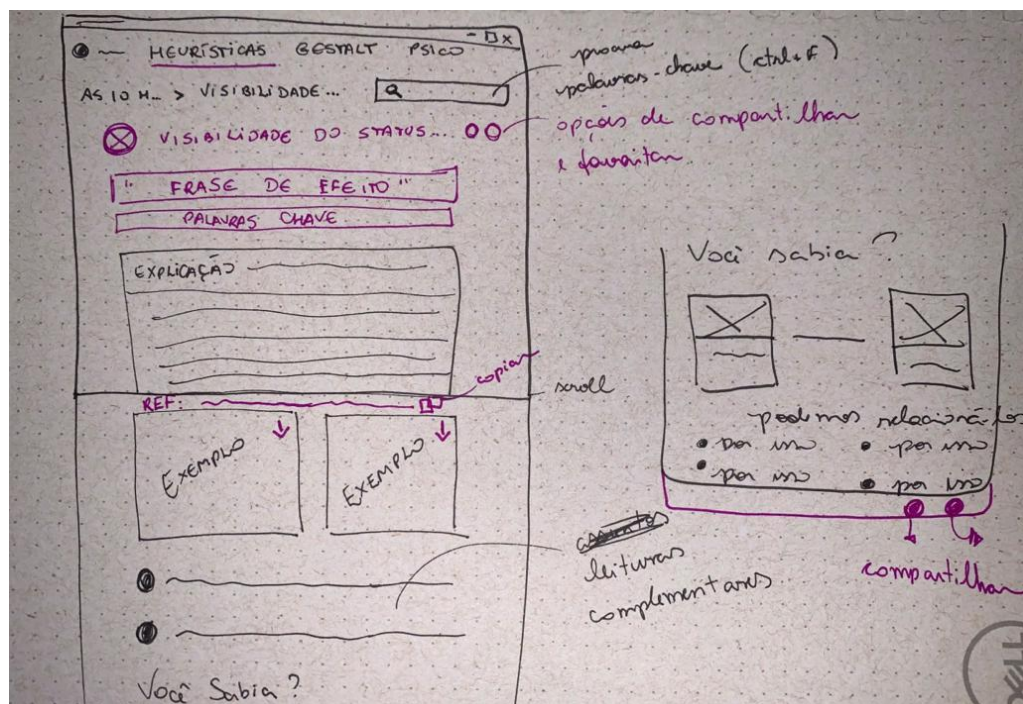 HEURÍSTICAS GESTALT PSICO
AS 10 H... > VISIBILIDADE...
VISIBILIDADE DO STATUS...
" FRASE DE EFEITO "
PALAVRAS CHAVE
EXPLICAÇÃO
REF:
EXEMPLO
EXEMPLO
Você Sabia?
procura
palavras-chave (ctrl+F)
opções de compartilhar
e favoritar
copiar
scroll
leituras
complementares
Você sabia?
podemos relacioná-los
por isso
por isso
por isso
por isso
compartilhar
DELL